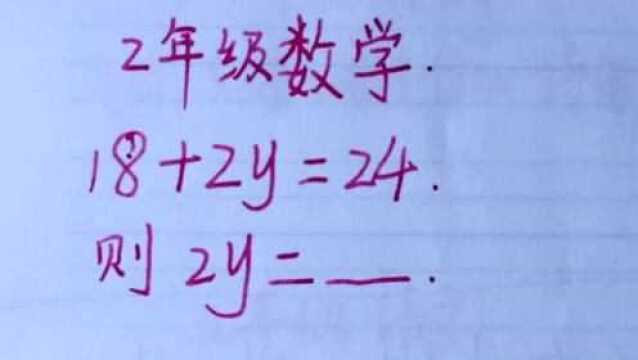 2年级数学.
18+2y=24.
则 2y=__.